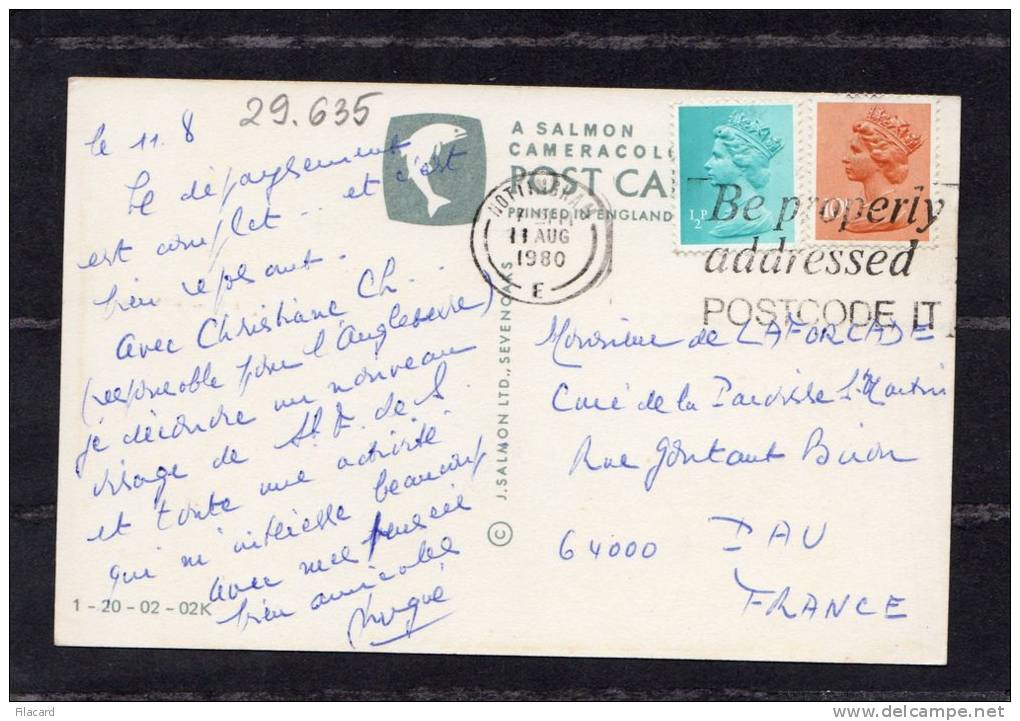 29.635
le 11.8
Le dépaysement
est complet... et c'est
bien reposant.
Avec Christiane Ch.
(responsable pour l'Angleterre)
je découvre un nouveau
visage de St. V. de S.
et toute une activité
qui m'intéresse beaucoup
avec mes pensées
bien amicales
1 - 20 - 02 - 02K
A SALMON
CAMERACOLO
POST CA
PRINTED IN ENGLAND
© J. SALMON LTD., SEVENOAKS
NOTTINGHAM
11 AUG
1980
E
½P
10P
Be properly
addressed
POSTCODE IT
Monsieur de LAFORCADE
Curé de la Paroisse St Martin
Rue Gontaut Biron
64000 PAU
FRANCE
Filacard
http://www.delcampe.net